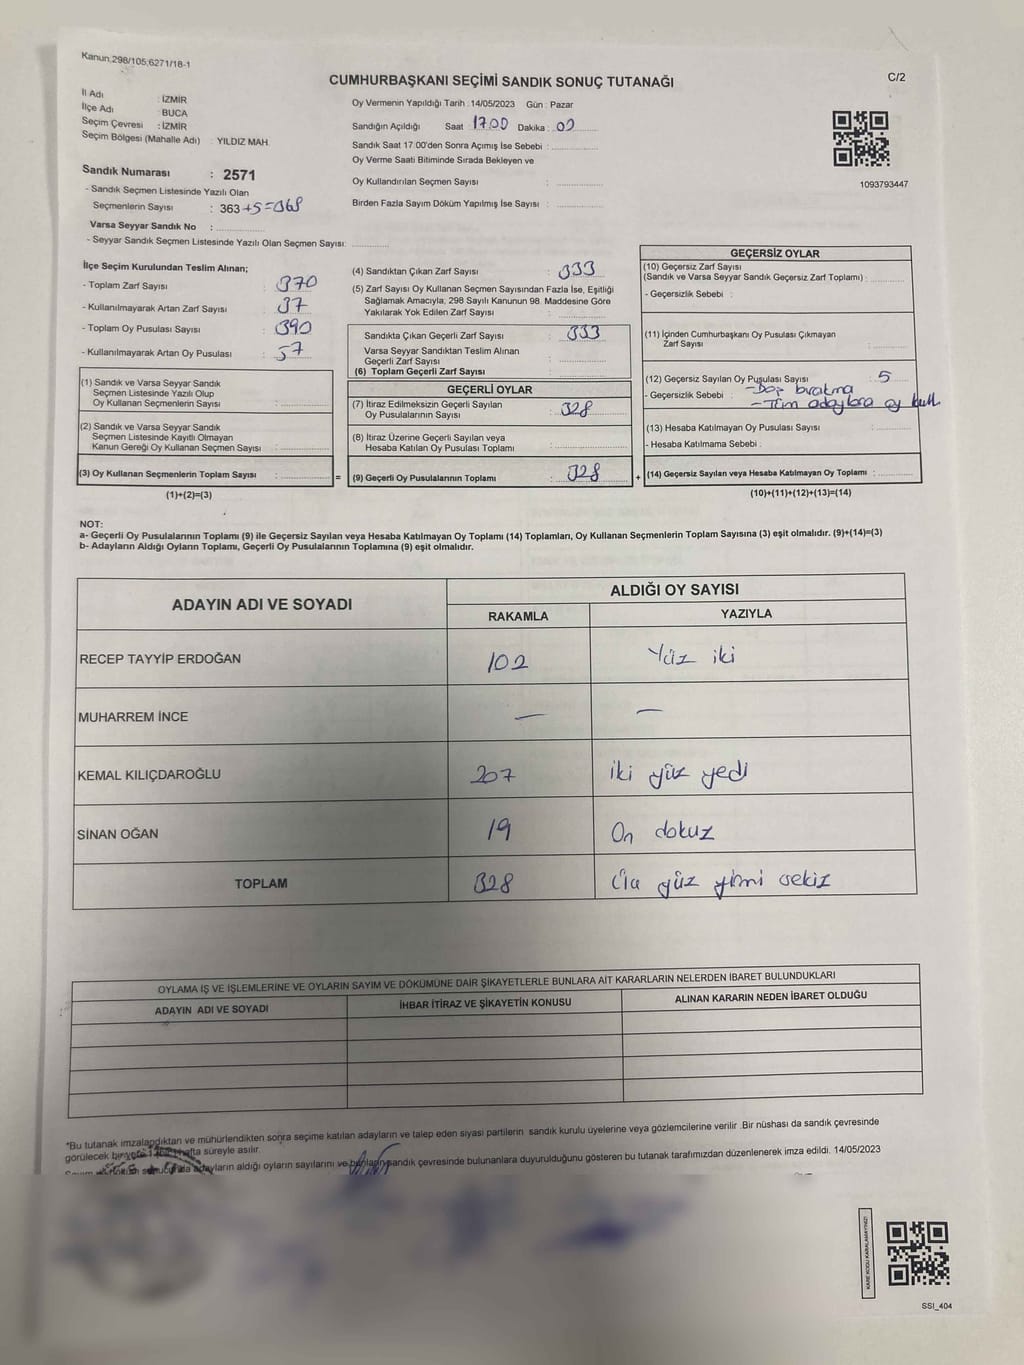 Kanun,298/105;6271/18-1
CUMHURBAŞKANI SEÇİMİ SANDIK SONUÇ TUTANAĞI
C/2
İl Adı : İZMİR
İlçe Adı : BUCA
Seçim Çevresi : İZMİR
Seçim Bölgesi (Mahalle Adı) : YILDIZ MAH.
Oy Vermenin Yapıldığı Tarih :14/05/2023 Gün : Pazar
Sandığın Açıldığı Saat :17.00 Dakika : 00
Sandık Saat 17.00'den Sonra Açımış İse Sebebi :
Oy Verme Saati Bitiminde Sırada Bekleyen ve
Oy Kullandırılan Seçmen Sayısı :
Birden Fazla Sayım Döküm Yapılmış İse Sayısı :
1093793447
Sandık Numarası : 2571
- Sandık Seçmen Listesinde Yazılı Olan
Seçmenlerin Sayısı : 363 +5=368
Varsa Seyyar Sandık No :
- Seyyar Sandık Seçmen Listesinde Yazılı Olan Seçmen Sayısı:
İlçe Seçim Kurulundan Teslim Alınan;
- Toplam Zarf Sayısı : 370
- Kullanılmayarak Artan Zarf Sayısı : 37
- Toplam Oy Pusulası Sayısı : 390
- Kullanılmayarak Artan Oy Pusulası : 57
(1) Sandık ve Varsa Seyyar Sandık
Seçmen Listesinde Yazılı Olup
Oy Kullanan Seçmenlerin Sayısı :
(2) Sandık ve Varsa Seyyar Sandık
Seçmen Listesinde Kayıtlı Olmayan
Kanun Gereği Oy Kullanan Seçmen Sayısı :
(3) Oy Kullanan Seçmenlerin Toplam Sayısı :
(1)+(2)=(3)
=
(4) Sandıktan Çıkan Zarf Sayısı : 333
(5) Zarf Sayısı Oy Kullanan Seçmen Sayısından Fazla İse, Eşitliği
Sağlamak Amacıyla; 298 Sayılı Kanunun 98. Maddesine Göre
Yakılarak Yok Edilen Zarf Sayısı :
Sandıkta Çıkan Geçerli Zarf Sayısı : 333
Varsa Seyyar Sandıktan Teslim Alınan
Geçerli Zarf Sayısı :
(6) Toplam Geçerli Zarf Sayısı :
GEÇERLİ OYLAR
(7) İtiraz Edilmeksizin Geçerli Sayılan
Oy Pusulalarının Sayısı : 328
(8) İtiraz Üzerine Geçerli Sayılan veya
Hesaba Katılan Oy Pusulası Toplamı :
(9) Geçerli Oy Pusulalarının Toplamı : 328
+
GEÇERSİZ OYLAR
(10) Geçersiz Zarf Sayısı
(Sandık ve Varsa Seyyar Sandık Geçersiz Zarf Toplamı) :
- Geçersizlik Sebebi :
(11) İçinden Cumhurbaşkanı Oy Pusulası Çıkmayan
Zarf Sayısı :
(12) Geçersiz Sayılan Oy Pusulası Sayısı : 5
- Geçersizlik Sebebi : bırakma
- Tüm adaylara oy kull.
(13) Hesaba Katılmayan Oy Pusulası Sayısı :
- Hesaba Katılmama Sebebi :
(14) Geçersiz Sayılan veya Hesaba Katılmayan Oy Toplamı :
(10)+(11)+(12)+(13)=(14)
NOT:
a- Geçerli Oy Pusulalarının Toplamı (9) ile Geçersiz Sayılan veya Hesaba Katılmayan Oy Toplamı (14) Toplamları, Oy Kullanan Seçmenlerin Toplam Sayısına (3) eşit olmalıdır. (9)+(14)=(3)
b- Adayların Aldığı Oyların Toplamı, Geçerli Oy Pusulalarının Toplamına (9) eşit olmalıdır.
ADAYIN ADI VE SOYADI
ALDIĞI OY SAYISI
RAKAMLA YAZIYLA
RECEP TAYYİP ERDOĞAN 102 Yüz iki
MUHARREM İNCE — —
KEMAL KILIÇDAROĞLU 207 iki yüz yedi
SİNAN OĞAN 19 On dokuz
TOPLAM 328 yüz yirmi sekiz
OYLAMA İŞ VE İŞLEMLERİNE VE OYLARIN SAYIM VE DÖKÜMÜNE DAİR ŞİKAYETLERLE BUNLARA AİT KARARLARIN NELERDEN İBARET BULUNDUKLARI
ADAYIN ADI VE SOYADI İHBAR İTİRAZ VE ŞİKAYETİN KONUSU ALINAN KARARIN NEDEN İBARET OLDUĞU
*Bu tutanak imzalandıktan ve mühürlendikten sonra seçime katılan adayların ve talep eden siyasi partilerin sandık kurulu üyelerine veya gözlemcilerine verilir .Bir nüshası da sandık çevresinde
görülecek bir yere 1 hafta süreyle asılır.
adayların aldığı oyların sayılarını ve bunların sandık çevresinde bulunanlara duyurulduğunu gösteren bu tutanak tarafımızdan düzenlenerek imza edildi. 14/05/2023
KARE KODU KARALAMAYINIZ!
SSI_404